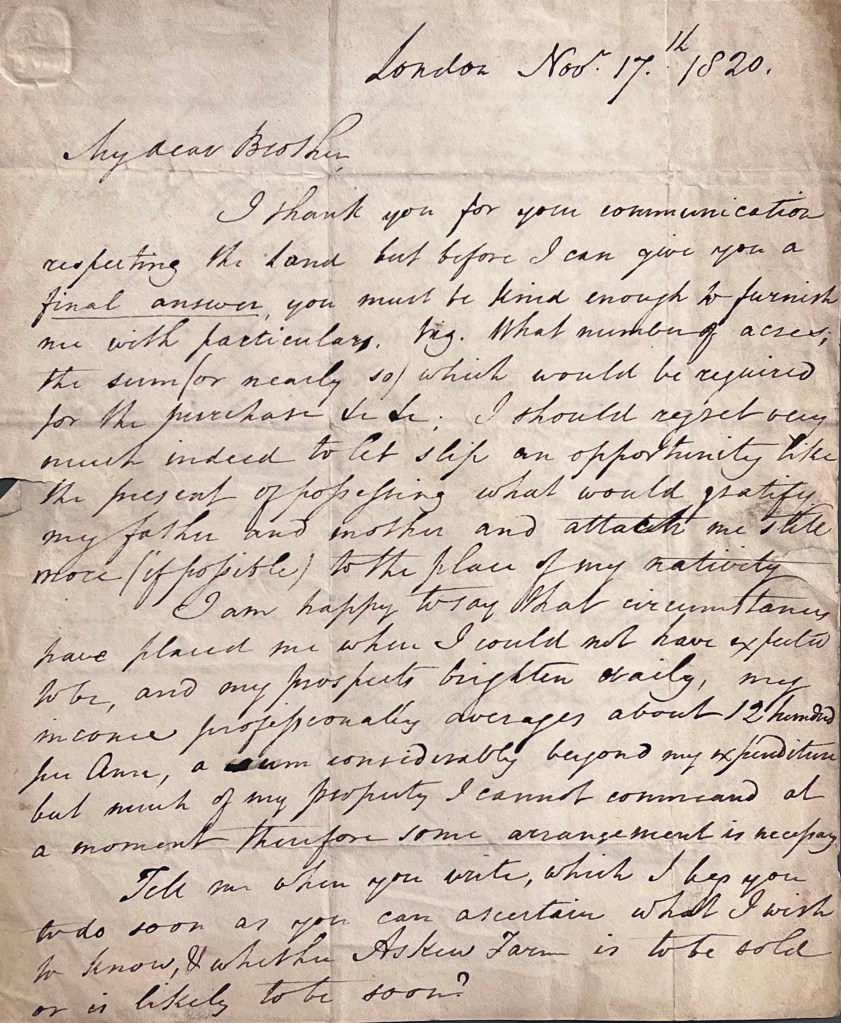 London Novr. 17.th 1820.
My dear Brother,
I thank you for your communication
respecting the Land but before I can give you a
final answer, you must be kind enough to furnish
me with particulars. Viz. What number of acres;
the sum (or nearly so) which would be required
for the purchase &c &c; I should regret very
much indeed to let slip an opportunity like
the present of possessing what would gratify
my father and mother and attach me still
more (if possible) to the place of my nativity
I am happy to say that circumstances
have placed me where I could not have expected
to be, and my prospects brighten daily, my
income professionally averages about 12 hundred
per Ann, a sum considerably beyond my expenditure
but much of my property I cannot command at
a moment therefore some arrangement is necessary
Tell me when you write, which I beg you
to do soon as you can ascertain what I wish
to know, & whether Askew Farm is to be sold
or is likely to be soon?